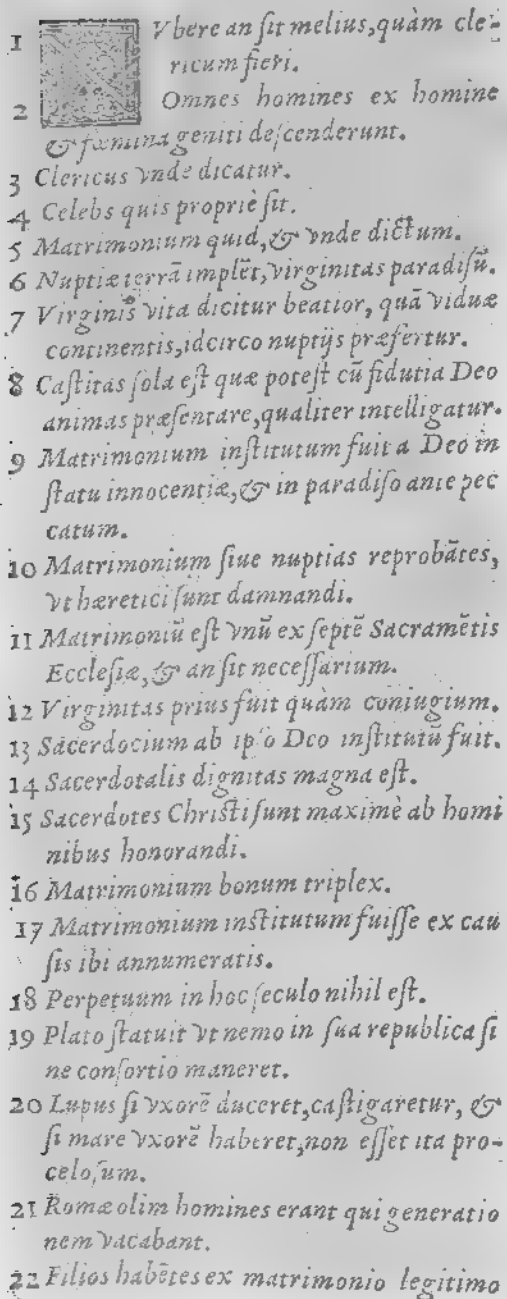 1 NVbere an ſit melius, quàm cle-
ricum fieri.
2 Omnes homines ex homine
& fœmina geniti deſcenderunt.
3 Clericus vnde dicatur.
4 Celebs quis propriè ſit.
5 Matrimonium quid, & vnde dictum.
6 Nuptiæ terrā implēt, virginitas paradiſū.
7 Virginis vita dicitur beatior, quā viduæ
continentis, idcirco nuptijs præfertur.
8 Caſtitas ſola eſt quæ poteſt cū fidutia Deo
animas præſentare, qualiter intelligatur.
9 Matrimonium inſtitutum fuit a Deo in
ſtatu innocentiæ, & in paradiſo ante pec
catum.
10 Matrimonium ſiue nuptias reprobātes,
vt hæretici ſunt damnandi.
11 Matrimoniū eſt vnū ex ſeptē Sacramētis
Eccleſiæ, & an ſit neceſſarium.
12 Virginitas prius fuit quàm coniugium.
13 Sacerdocium ab ipſo Deo inſtitutū fuit.
14 Sacerdotalis dignitas magna eſt.
15 Sacerdotes Chriſti ſunt maximè ab homi
nibus honorandi.
16 Matrimonium bonum triplex.
17 Matrimonium inſtitutum fuiſſe ex cau
ſis ibi annumeratis.
18 Perpetuum in hoc ſeculo nihil eſt.
19 Plato ſtatuit vt nemo in ſua republica ſi
ne conſortio maneret.
20 Lupus ſi vxorē duceret, caſtigaretur, &
ſi mare vxorē haberet, non eſſet ita pro-
celoſum.
21 Romæ olim homines erant qui generatio
nem vacabant.
22 Filios habētes ex matrimonio legitimo